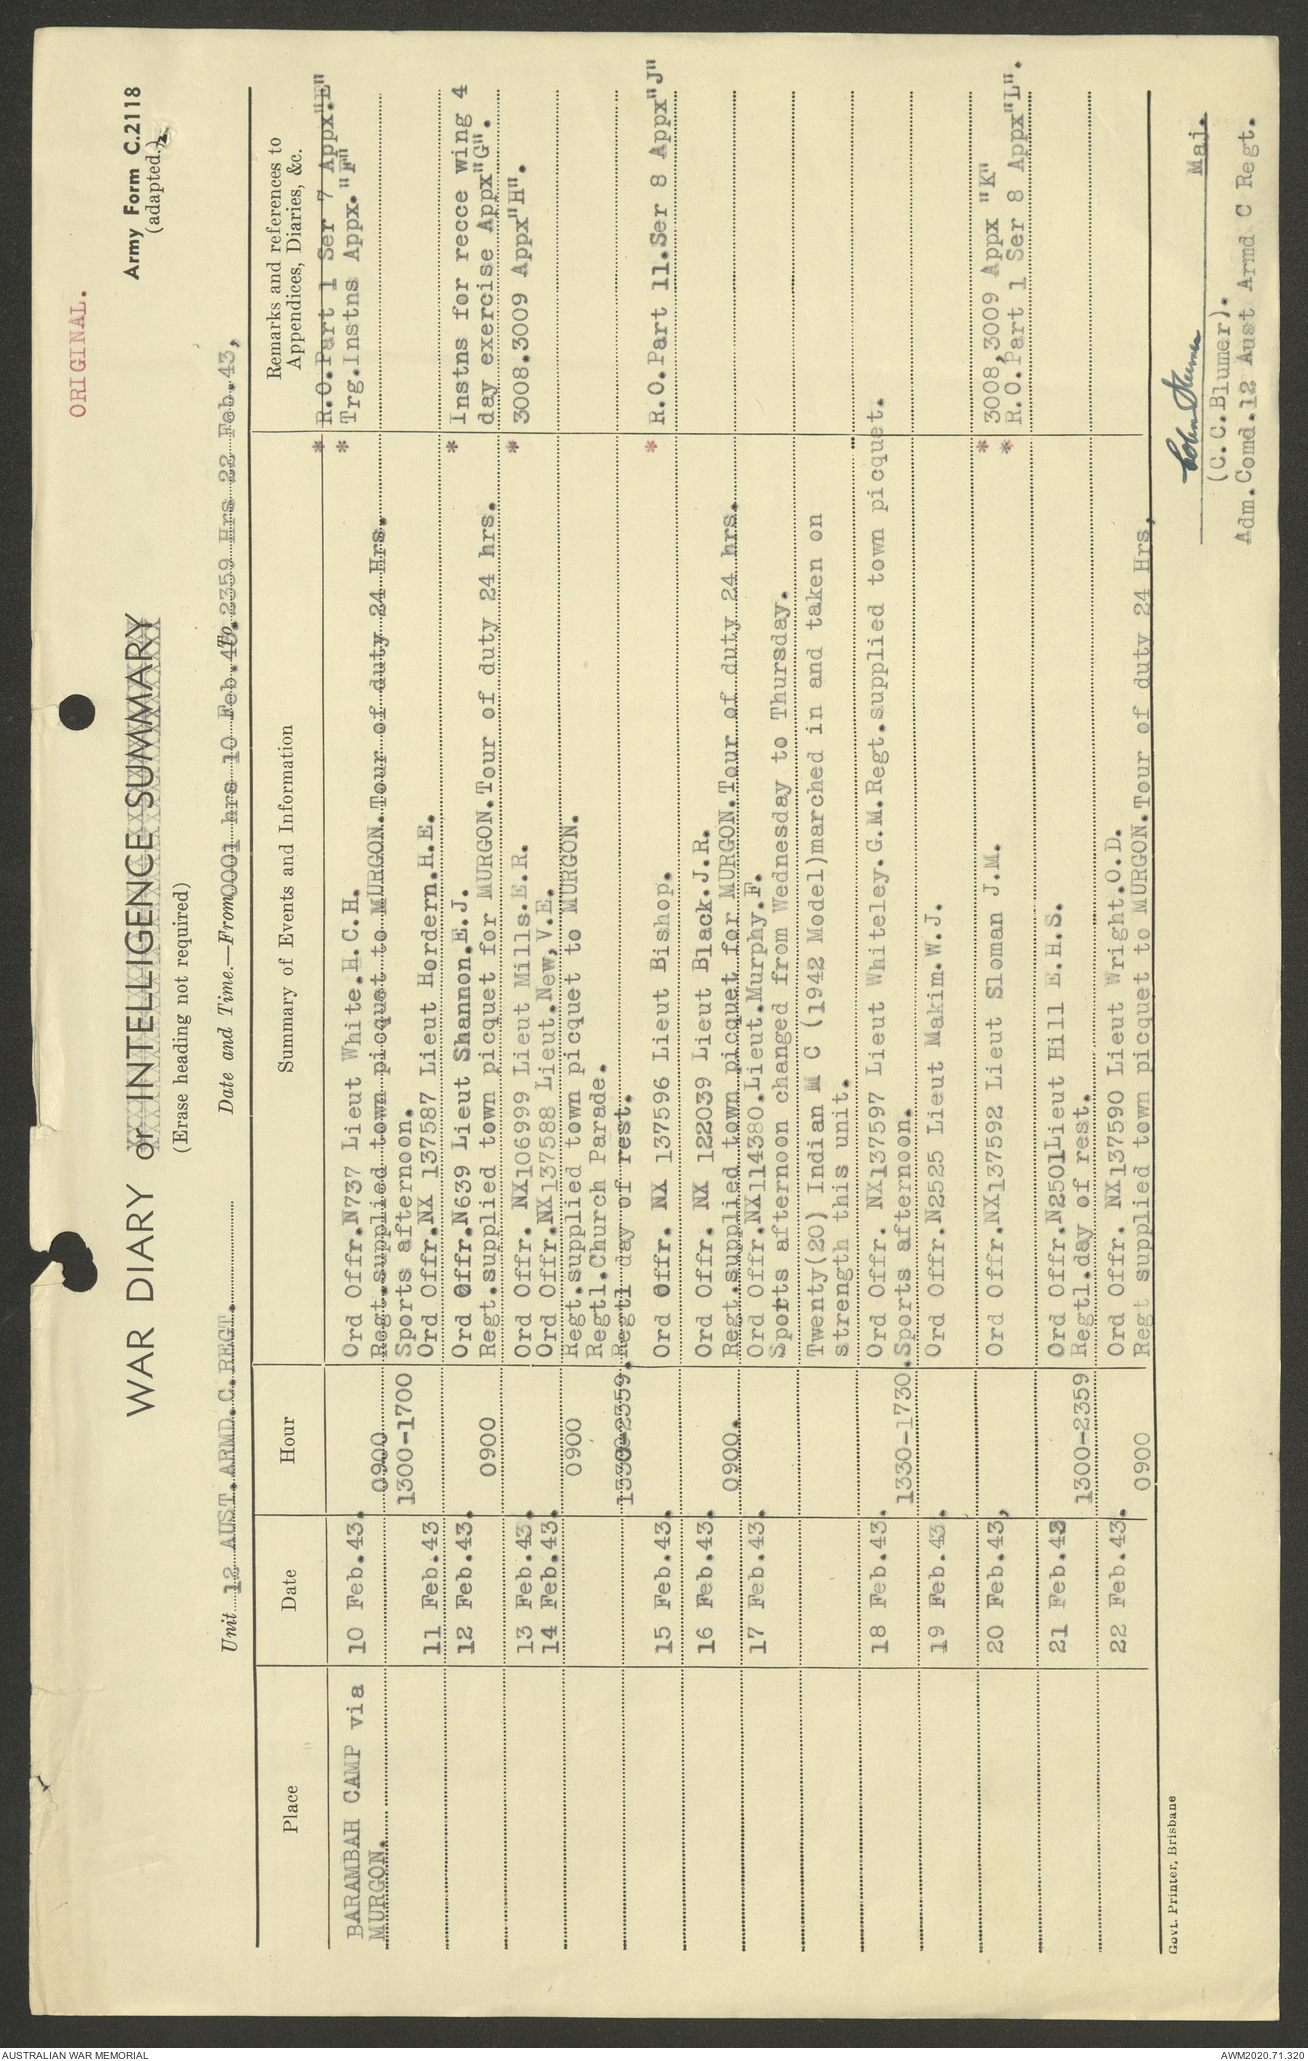 ORIGINAL.
Army Form C.2118
(adapted.)
WAR DIARY or INTELLIGENCE SUMMARY
(Erase heading not required)
Unit 12 AUST. ARMD. C. REGT. Date and Time.—From 0001 hrs 10 Feb. 43. To 2359 Hrs 22 Feb.43,
Place Date Hour Summary of Events and Information Remarks and references to
Appendices, Diaries, &c.
* R.O.Part 1 Ser 7 Appx."E"
BARAMBAH CAMP via 10 Feb.43. Ord Offr.N737 Lieut White.H.C.H. * Trg.Instns Appx."F"
MURGON. 0900 Regt.supplied town picquet to MURGON.Tour of duty 24 Hrs.
1300-1700 Sports afternoon.
11 Feb.43 Ord Offr.NX 137587 Lieut Hordern.H.E.
12 Feb.43. Ord Offr.N639 Lieut Shannon.E.J. * Instns for recce wing 4
0900 Regt.supplied town picquet for MURGON.Tour of duty 24 hrs. day exercise Appx"G".
13 Feb.43. Ord Offr. NX106999 Lieut Mills.E.R. * 3008.3009 Appx"H".
14 Feb.43. Ord Offr.NX137588 Lieut.New,V.E.
0900 Regt.supplied town picquet to MURGON.
Regtl.Church Parade.
1330-2359. Regtl day of rest.
15 Feb.43. Ord Offr. NX 137596 Lieut Bishop. * R.O.Part 11.Ser 8 Appx"J"
16 Feb.43. Ord Offr. NX 122039 Lieut Black.J.R.
0900. Regt.supplied town picquet for MURGON.Tour of duty 24 hrs.
17 Feb.43. Ord Offr.NX114380.Lieut.Murphy.F.
Sports afternoon changed from Wednesday to Thursday.
Twenty(20) Indian M C (1942 Model)marched in and taken on
strength this unit.
18 Feb.43. Ord Offr. NX137597 Lieut Whiteley.G.M.Regt.supplied town picquet.
1330-1730. Sports afternoon.
19 Feb.43. Ord Offr.N2525 Lieut Makim.W.J.
20 Feb.43, Ord Offr.NX137592 Lieut Sloman J.M. * 3008,3009 Appx "K"
* R.O.Part 1 Ser 8 Appx"L".
21 Feb.43 Ord Offr.N2501Lieut Hill E.H.S.
1300-2359 Regtl.day of rest.
22 Feb.43. Ord Offr. NX137590 Lieut Wright.O.D.
0900 Regt supplied town picquet to MURGON.Tour of duty 24 Hrs,
Govt. Printer, Brisbane
Colin Blumer Maj.
(C.C.Blumer).
Adm.Comd.12 Aust Armd C Regt.
AUSTRALIAN WAR MEMORIAL AWM2020.71.320